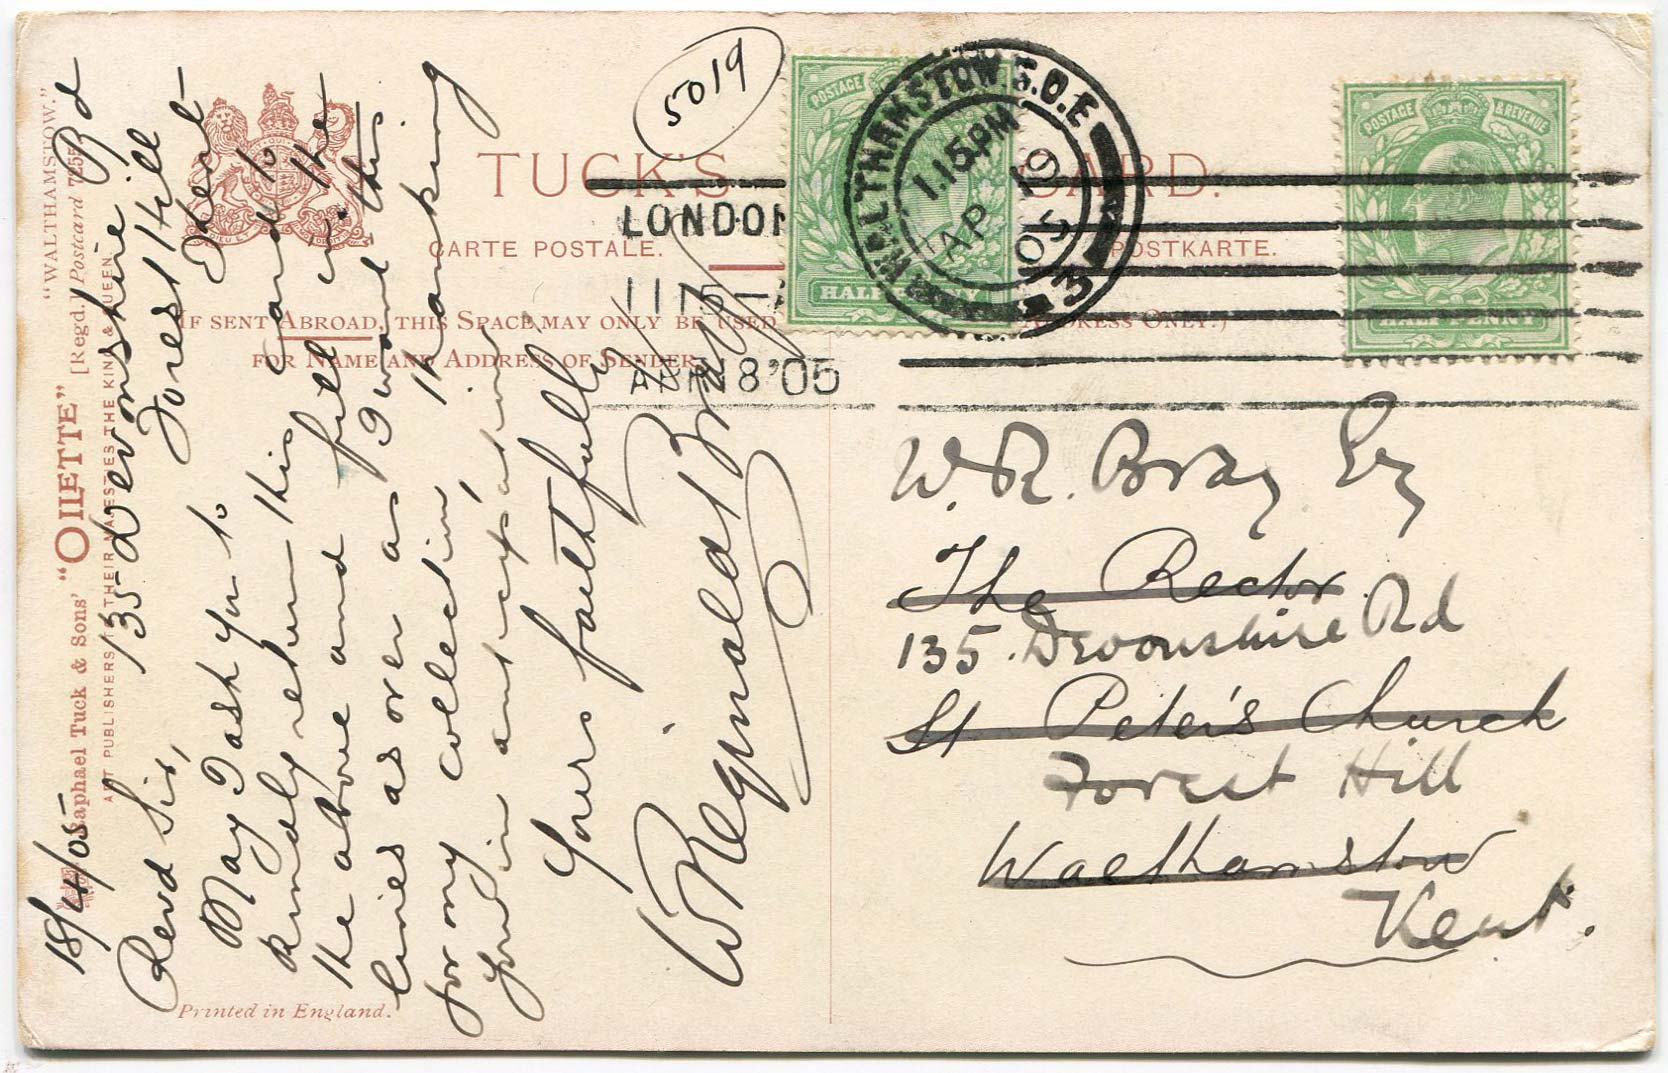 5019
TUCK'S CARD.
CARTE POSTALE. POSTKARTE.
(IF SENT ABROAD, THIS SPACE MAY ONLY BE USED ADDRESS ONLY.)
FOR NAME AND ADDRESS OF SENDER.
LONDON
11 15
APR 18 '05
WALTHAMSTOW S.O.E
1.15PM
AP 19
05
3
POSTAGE
HALFPENNY
POSTAGE & REVENUE
HALFPENNY
"WALTHAMSTOW."
Raphael Tuck & Sons' "OILETTE" [Regd.] Postcard 7255
ART PUBLISHERS TO THEIR MAJESTIES THE KING & QUEEN
Printed in England.
135 Devonshire Rd
Forest Hill
18/4/05
Revd Sir,
May I ask you to
kindly return this card to
the above and fill in the
lines as over as I want this
for my collection, thanking
you in anticipation
Yours faithfully
W Reginald Bray
W. R. Bray Esq
The Rector
135 Devonshire Rd
St Peter's Church
Forest Hill
Walthamstow
Kent.